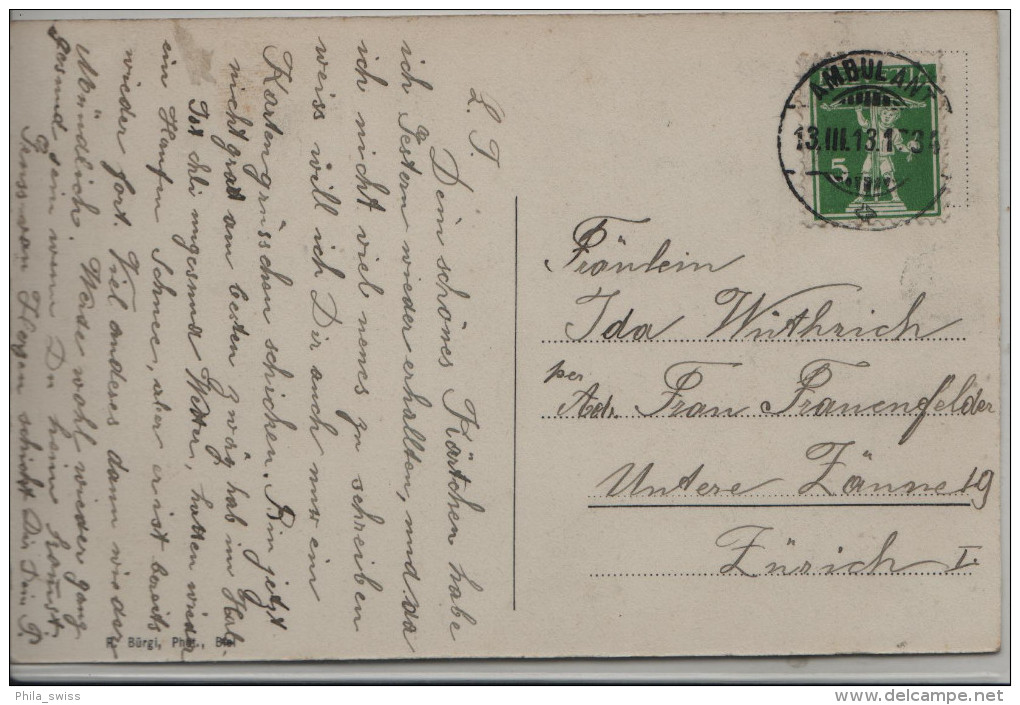 L. T.
Dein schönes Kärtchen habe
ich Gestern wieder erhallten, und da
ich nicht viel neues zu schreiben
weiss will ich Dir auch nur ein
Kartengrüsschen schicken. Bin jetzt
nicht grad am besten zwäg hab im Hals.
Ist ungesund Wetter, hatten wieder
ein Haufen Schnee, aber er ist bereits
wieder fort. Viel anderes dann wieder
Mündlich. Werde wohl wieder ganz
gesund sein wenn Du heim kommst.
Gruss von Herzen schickt Dir
R. Bürgi, Phot., Biel
AMBULANT
13.III.13.
5
Fräulein
Ida Wüthrich
per
Adr. Frau Frauenfelder
Untere Zäune 19
Zürich I.
Phila_swiss
www.delcampe.net